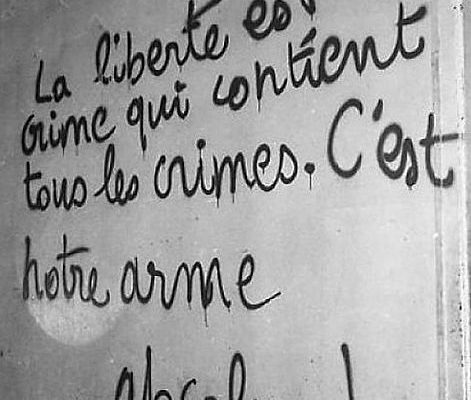 La liberté est
crime qui contient
tous les crimes. C'est
notre arme